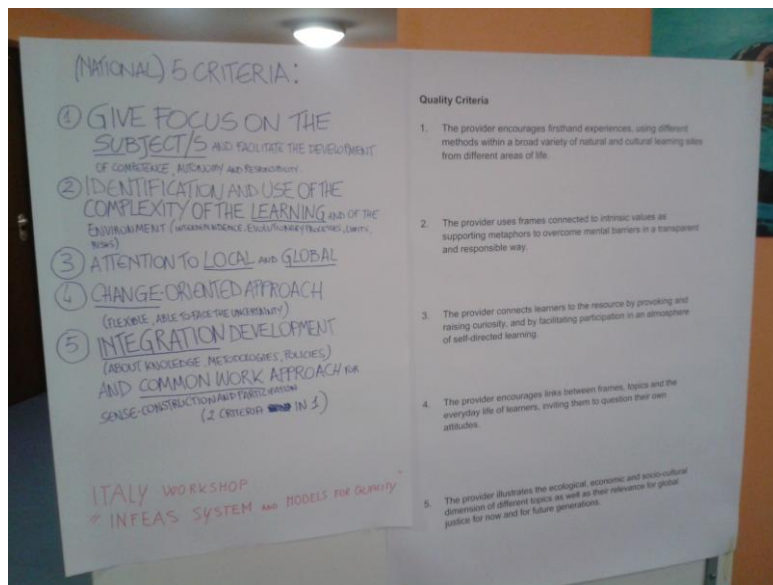 (NATIONAL) 5 CRITERIA:
① GIVE FOCUS ON THE
SUBJECT/S AND FACILITATE THE DEVELOPMENT
OF COMPETENCE, AUTONOMY AND RESPONSIBILITY
② IDENTIFICATION AND USE OF THE
COMPLEXITY OF THE LEARNING AND OF THE
ENVIRONMENT (INTERDEPENDENCE, EVOLUTIONARY PROCESSES, LIMITS,
RISKS)
③ ATTENTION TO LOCAL AND GLOBAL
④ CHANGE-ORIENTED APPROACH
(FLEXIBLE, ABLE TO FACE THE UNCERTAINTY)
⑤ INTEGRATION DEVELOPMENT
(ABOUT KNOWLEDGE, METODOLOGIES, POLICIES)
AND COMMON WORK APPROACH FOR
SENSE-CONSTRUCTION AND PARTICIPATION
(2 CRITERIA IN 1)
ITALY WORKSHOP
"INFEAS SYSTEM AND MODELS FOR QUALITY"
Quality Criteria
1. The provider encourages firsthand experiences, using different
methods within a broad variety of natural and cultural learning sites
from different areas of life.
2. The provider uses frames connected to intrinsic values as
supporting metaphors to overcome mental barriers in a transparent
and responsible way.
3. The provider connects learners to the resource by provoking and
raising curiosity, and by facilitating participation in an atmosphere
of self-directed learning.
4. The provider encourages links between frames, topics and the
everyday life of learners, inviting them to question their own
attitudes.
5. The provider illustrates the ecological, economic and socio-cultural
dimension of different topics as well as their relevance for global
justice for now and for future generations.